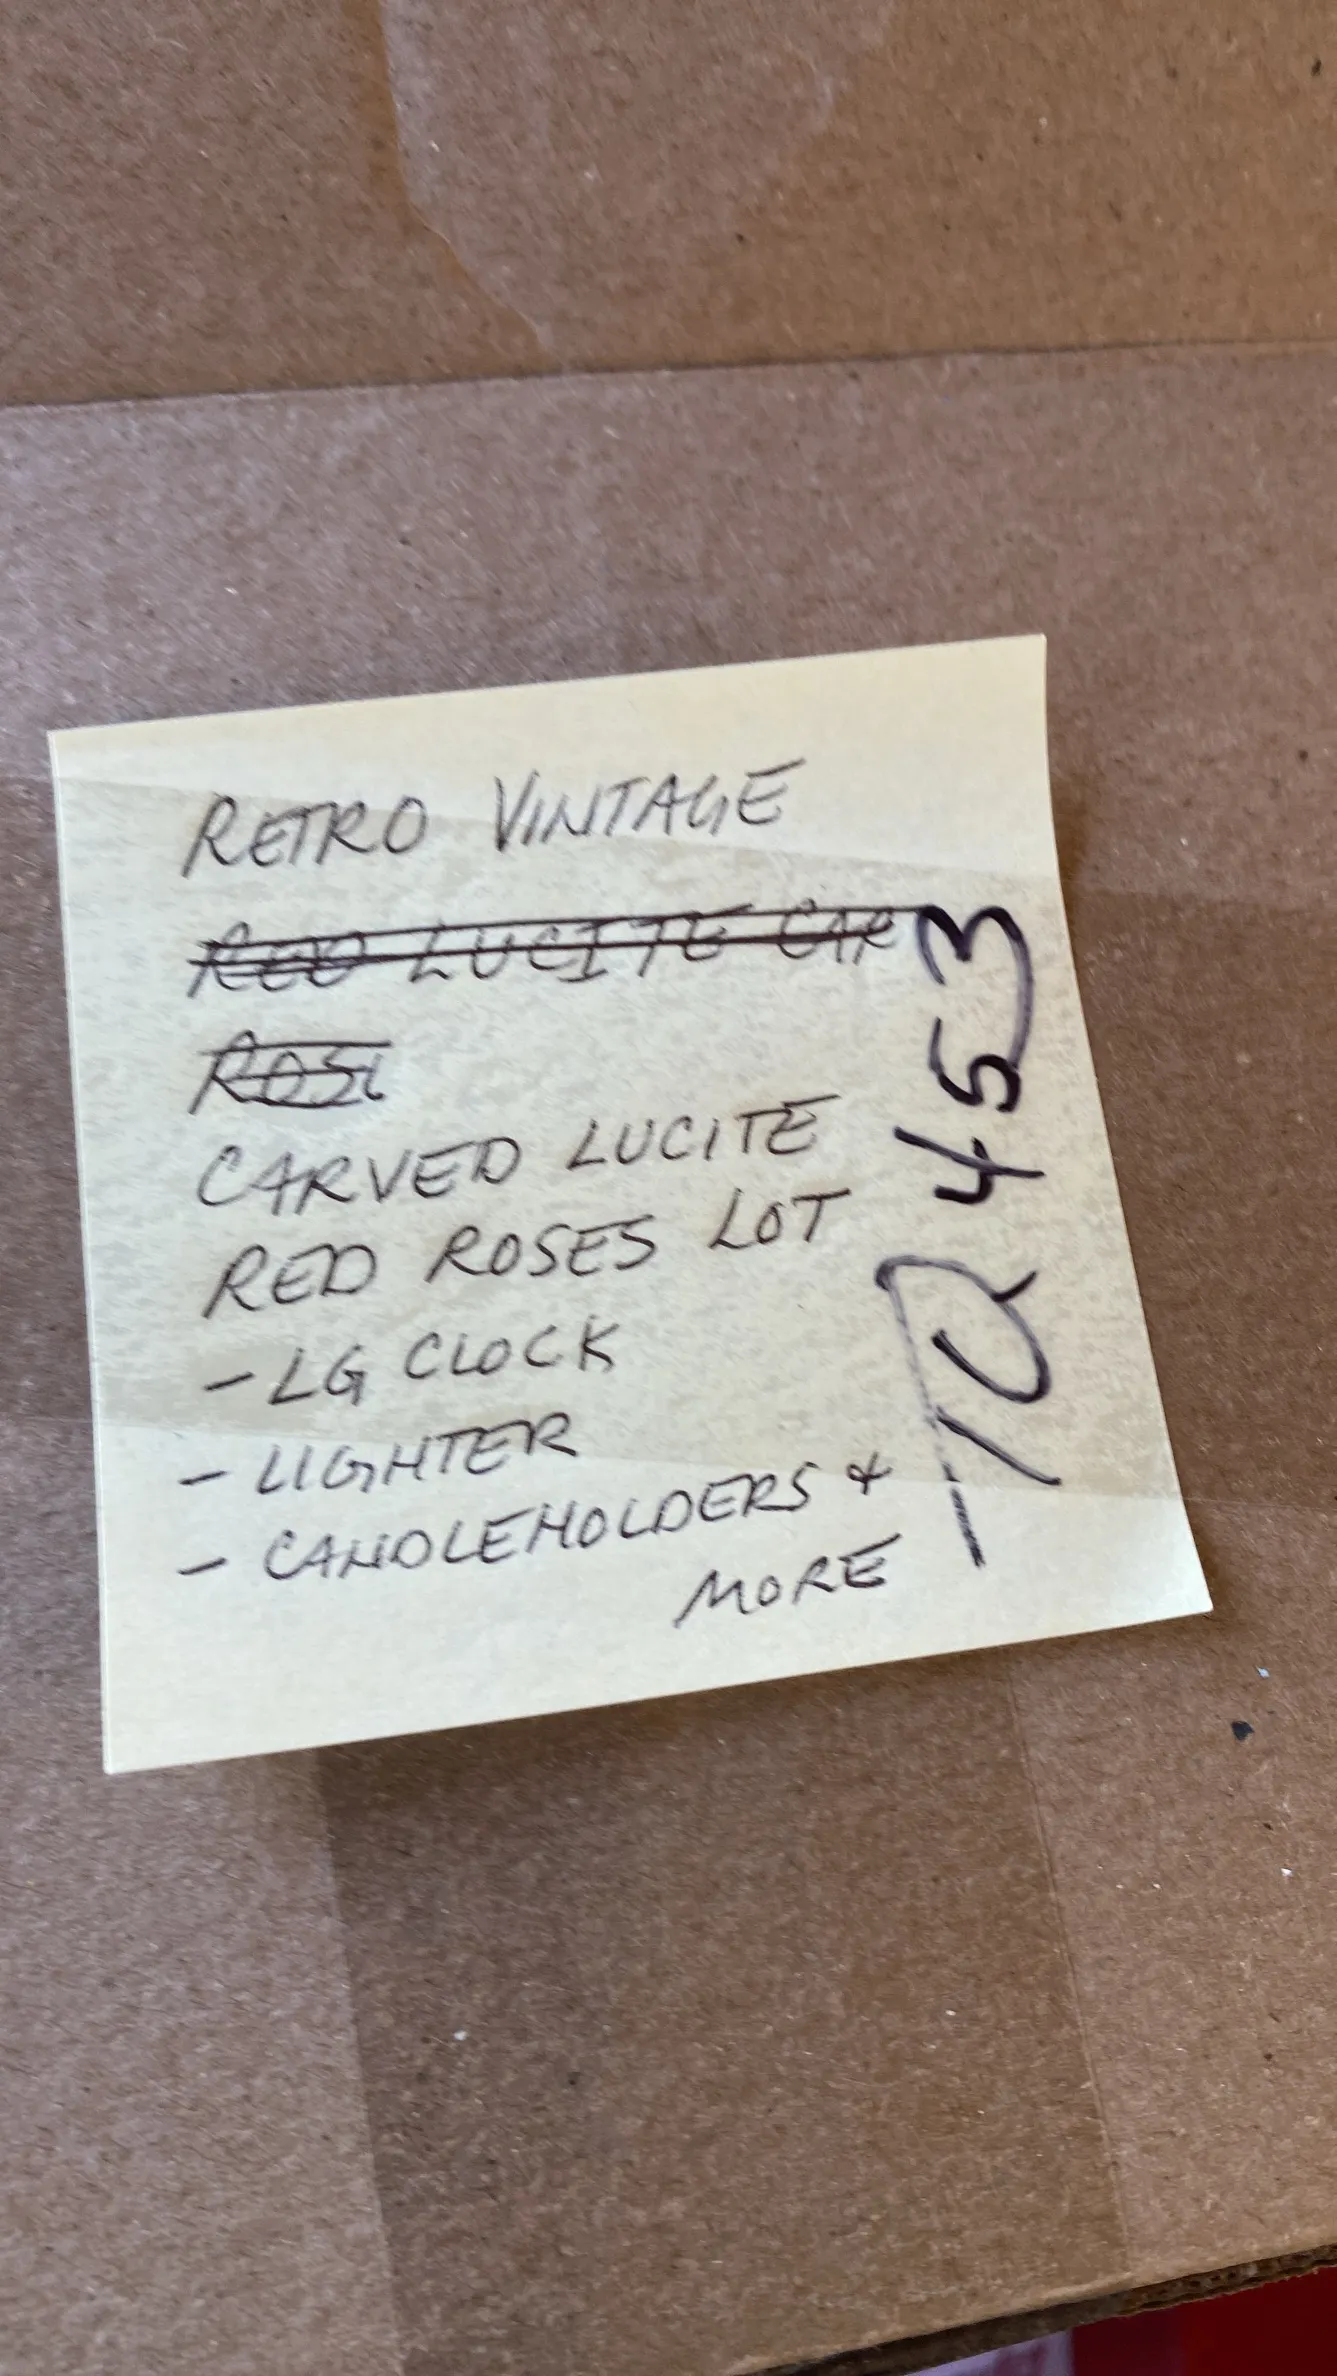 RETRO VINTAGE
RED LUCITE CAR
ROSE
CARVED LUCITE
RED ROSES LOT
- LG CLOCK
- LIGHTER
- CANDLEHOLDERS &
MORE
453